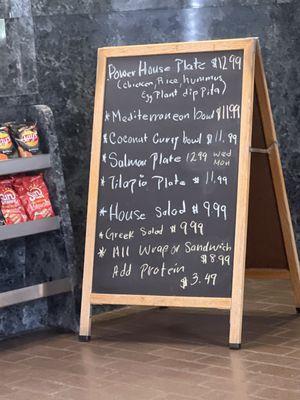 Power House Plate $12.99
(chicken, Rice, hummus,
Egg Plant dip Pita)
* Mediterranean bowl $11.99
* Coconut Curry bowl $11.99
* Salmon Plate 12.99 wed
Mon
* Tilapia Plate $11.99
* House Salad $9.99
* Greek Salad $9.99
* All Wrap or Sandwich
$8.99
Add Protein
$3.49
Sun